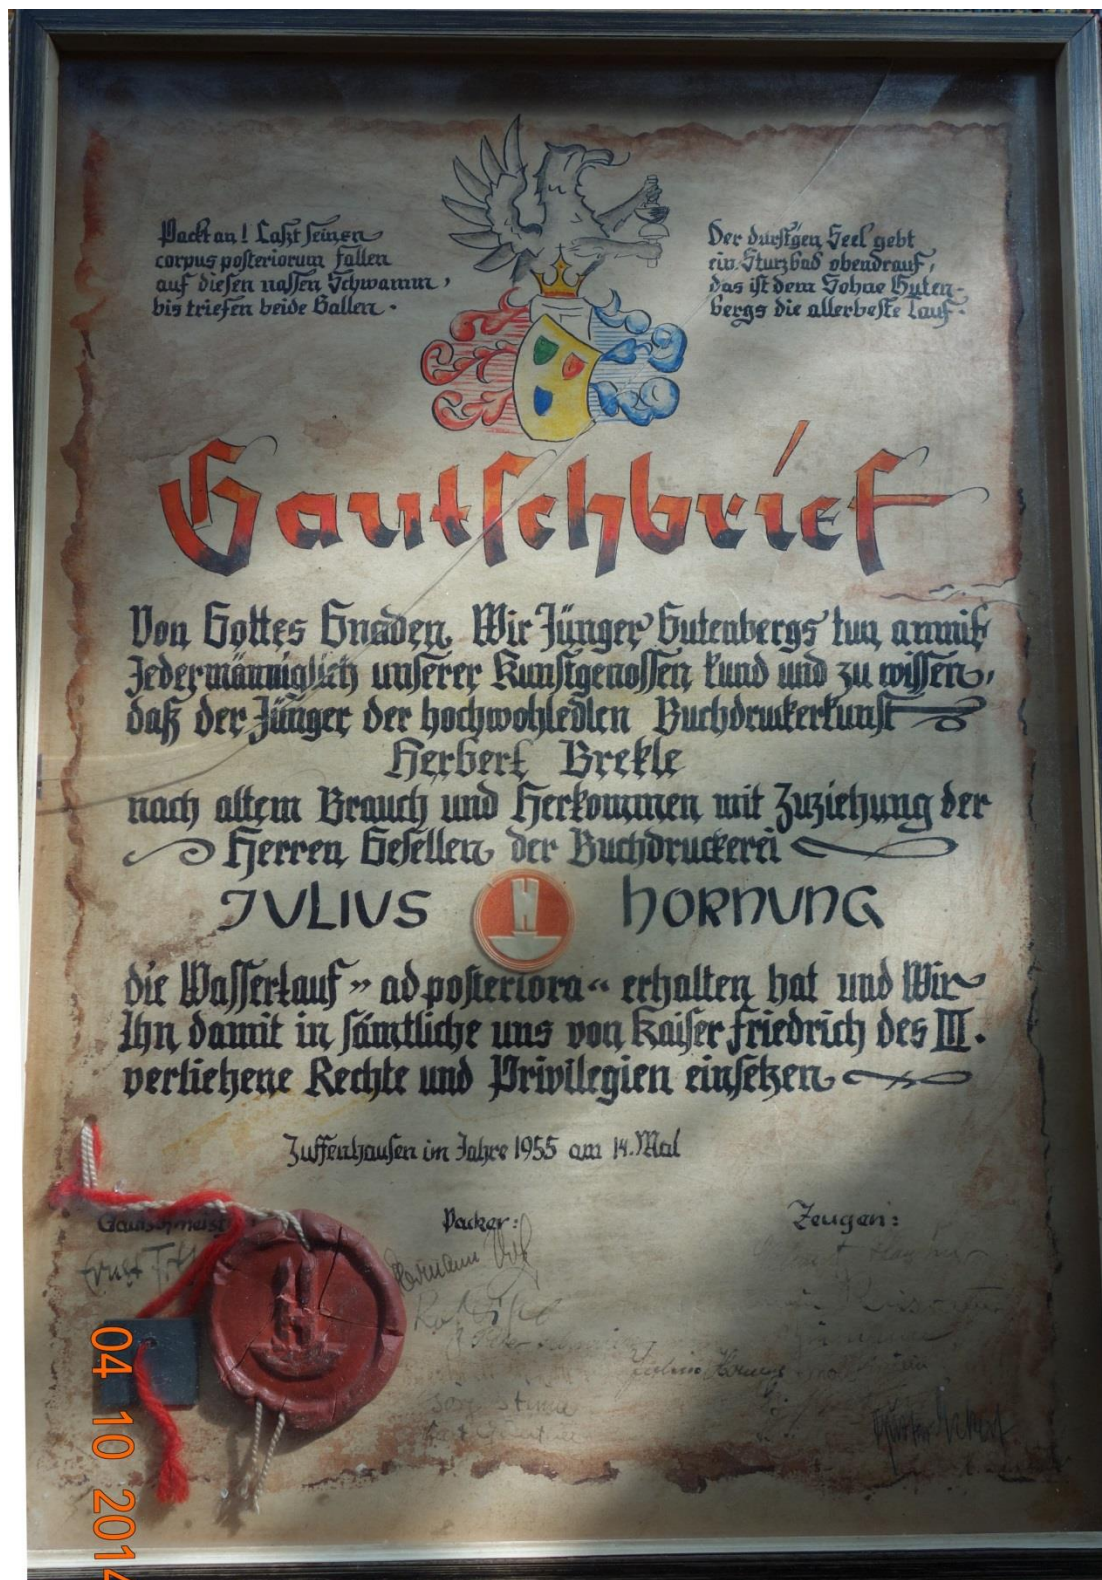 Packt an! Laßt seinen
corpus posteriorum fallen
auf diesen nassen Schwamm,
bis triefen beide Ballen.
Der durstgen Seel gebt
ein Sturzbad obendrauf,
das ist dem Sohne Guten-
bergs die allerbeste Tauf.
Gautschbrief
Von Gottes Gnaden. Wir Jünger Gutenbergs tun anmit
Jedermänniglich unserer Kunstgenossen kund und zu wissen,
daß der Jünger der hochwohledlen Buchdruckerkunst
Herbert Brekle
nach altem Brauch und Herkommen mit Zuziehung der
Herren Gesellen der Buchdruckerei
JULIUS H HORNUNG
die Wassertauf "ad posteriora" erhalten hat und Wir
Ihn damit in sämtliche uns von Kaiser Friedrich des III.
verliehene Rechte und Privilegien einsetzen
Zuffenhausen im Jahre 1955 am 14. Mai
Gautschmeist Packer: Zeugen:
Ernst
Hermann
Julius Hornung
04 10 2014